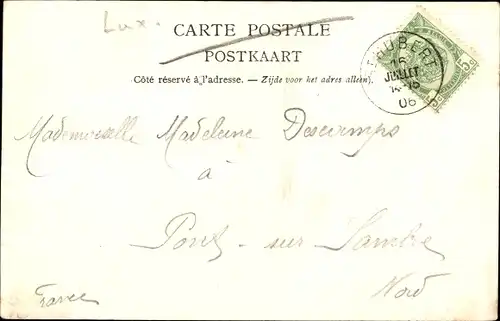 Lux.
CARTE POSTALE
POSTKAART
Côté réservé à l'adresse. — Zijde voor het adres alleen.
ST HUBERT
16
JUILLET
14-15
06
Mademoiselle Madeleine Descamps
à
Pont-sur Sambre
Nord
France